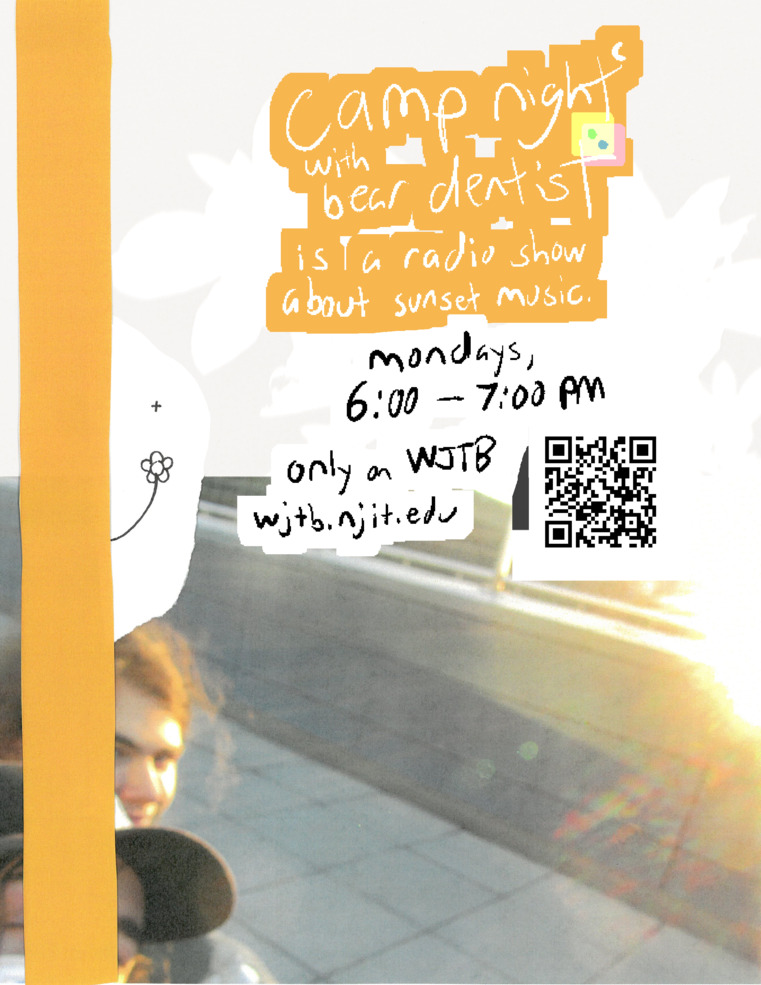 camp night
with
bear dentist
is a radio show
about sunset music.
mondays,
6:00 — 7:00 PM
only on WJTB
wjtb.njit.edu